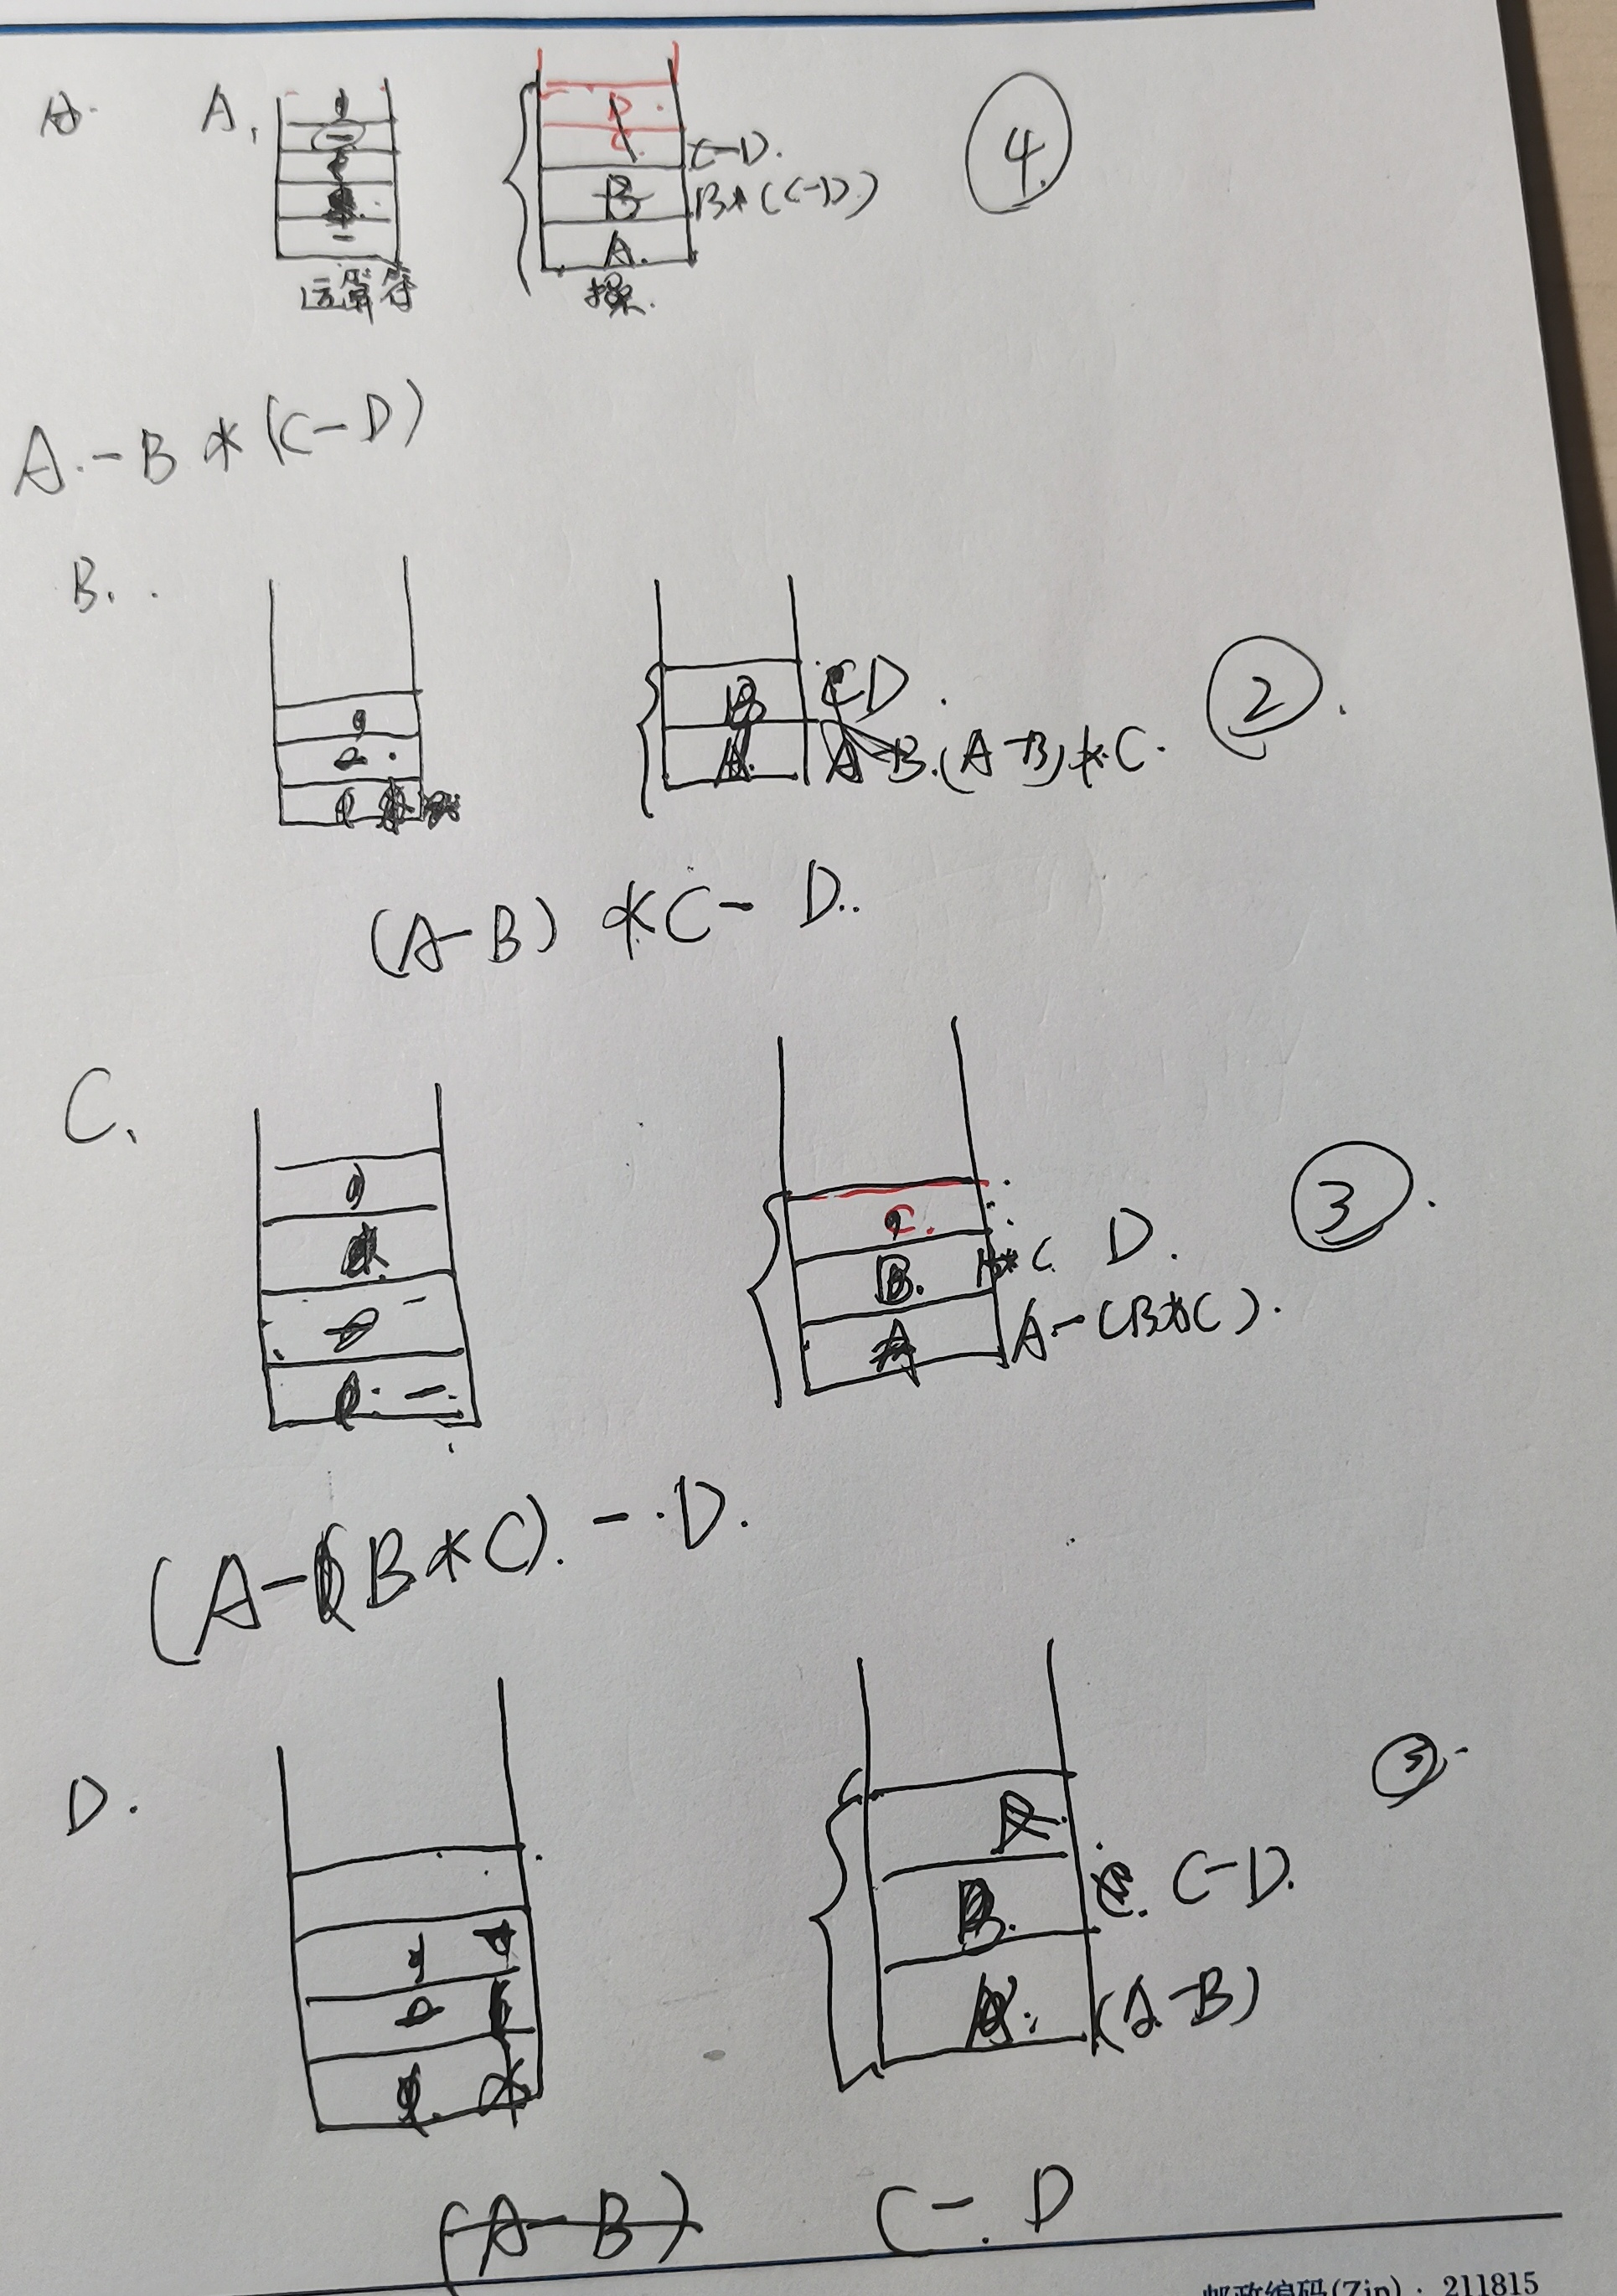 A.
A.
D
C
B
A.
C-D.
B*(C-D)
4
运算符
操.
A.-B*(C-D)
B.
B
A.
CD.
A-B.(A-B)*C.
2
(A-B)*C-D.
C.
C.
B.
A
B*C
D.
A-(B*C).
3
(A-(B*C).-.D.
D.
B.
C. C-D.
(A-B)
3
(A-B)
C-.D
邮政编码(Zip):211815